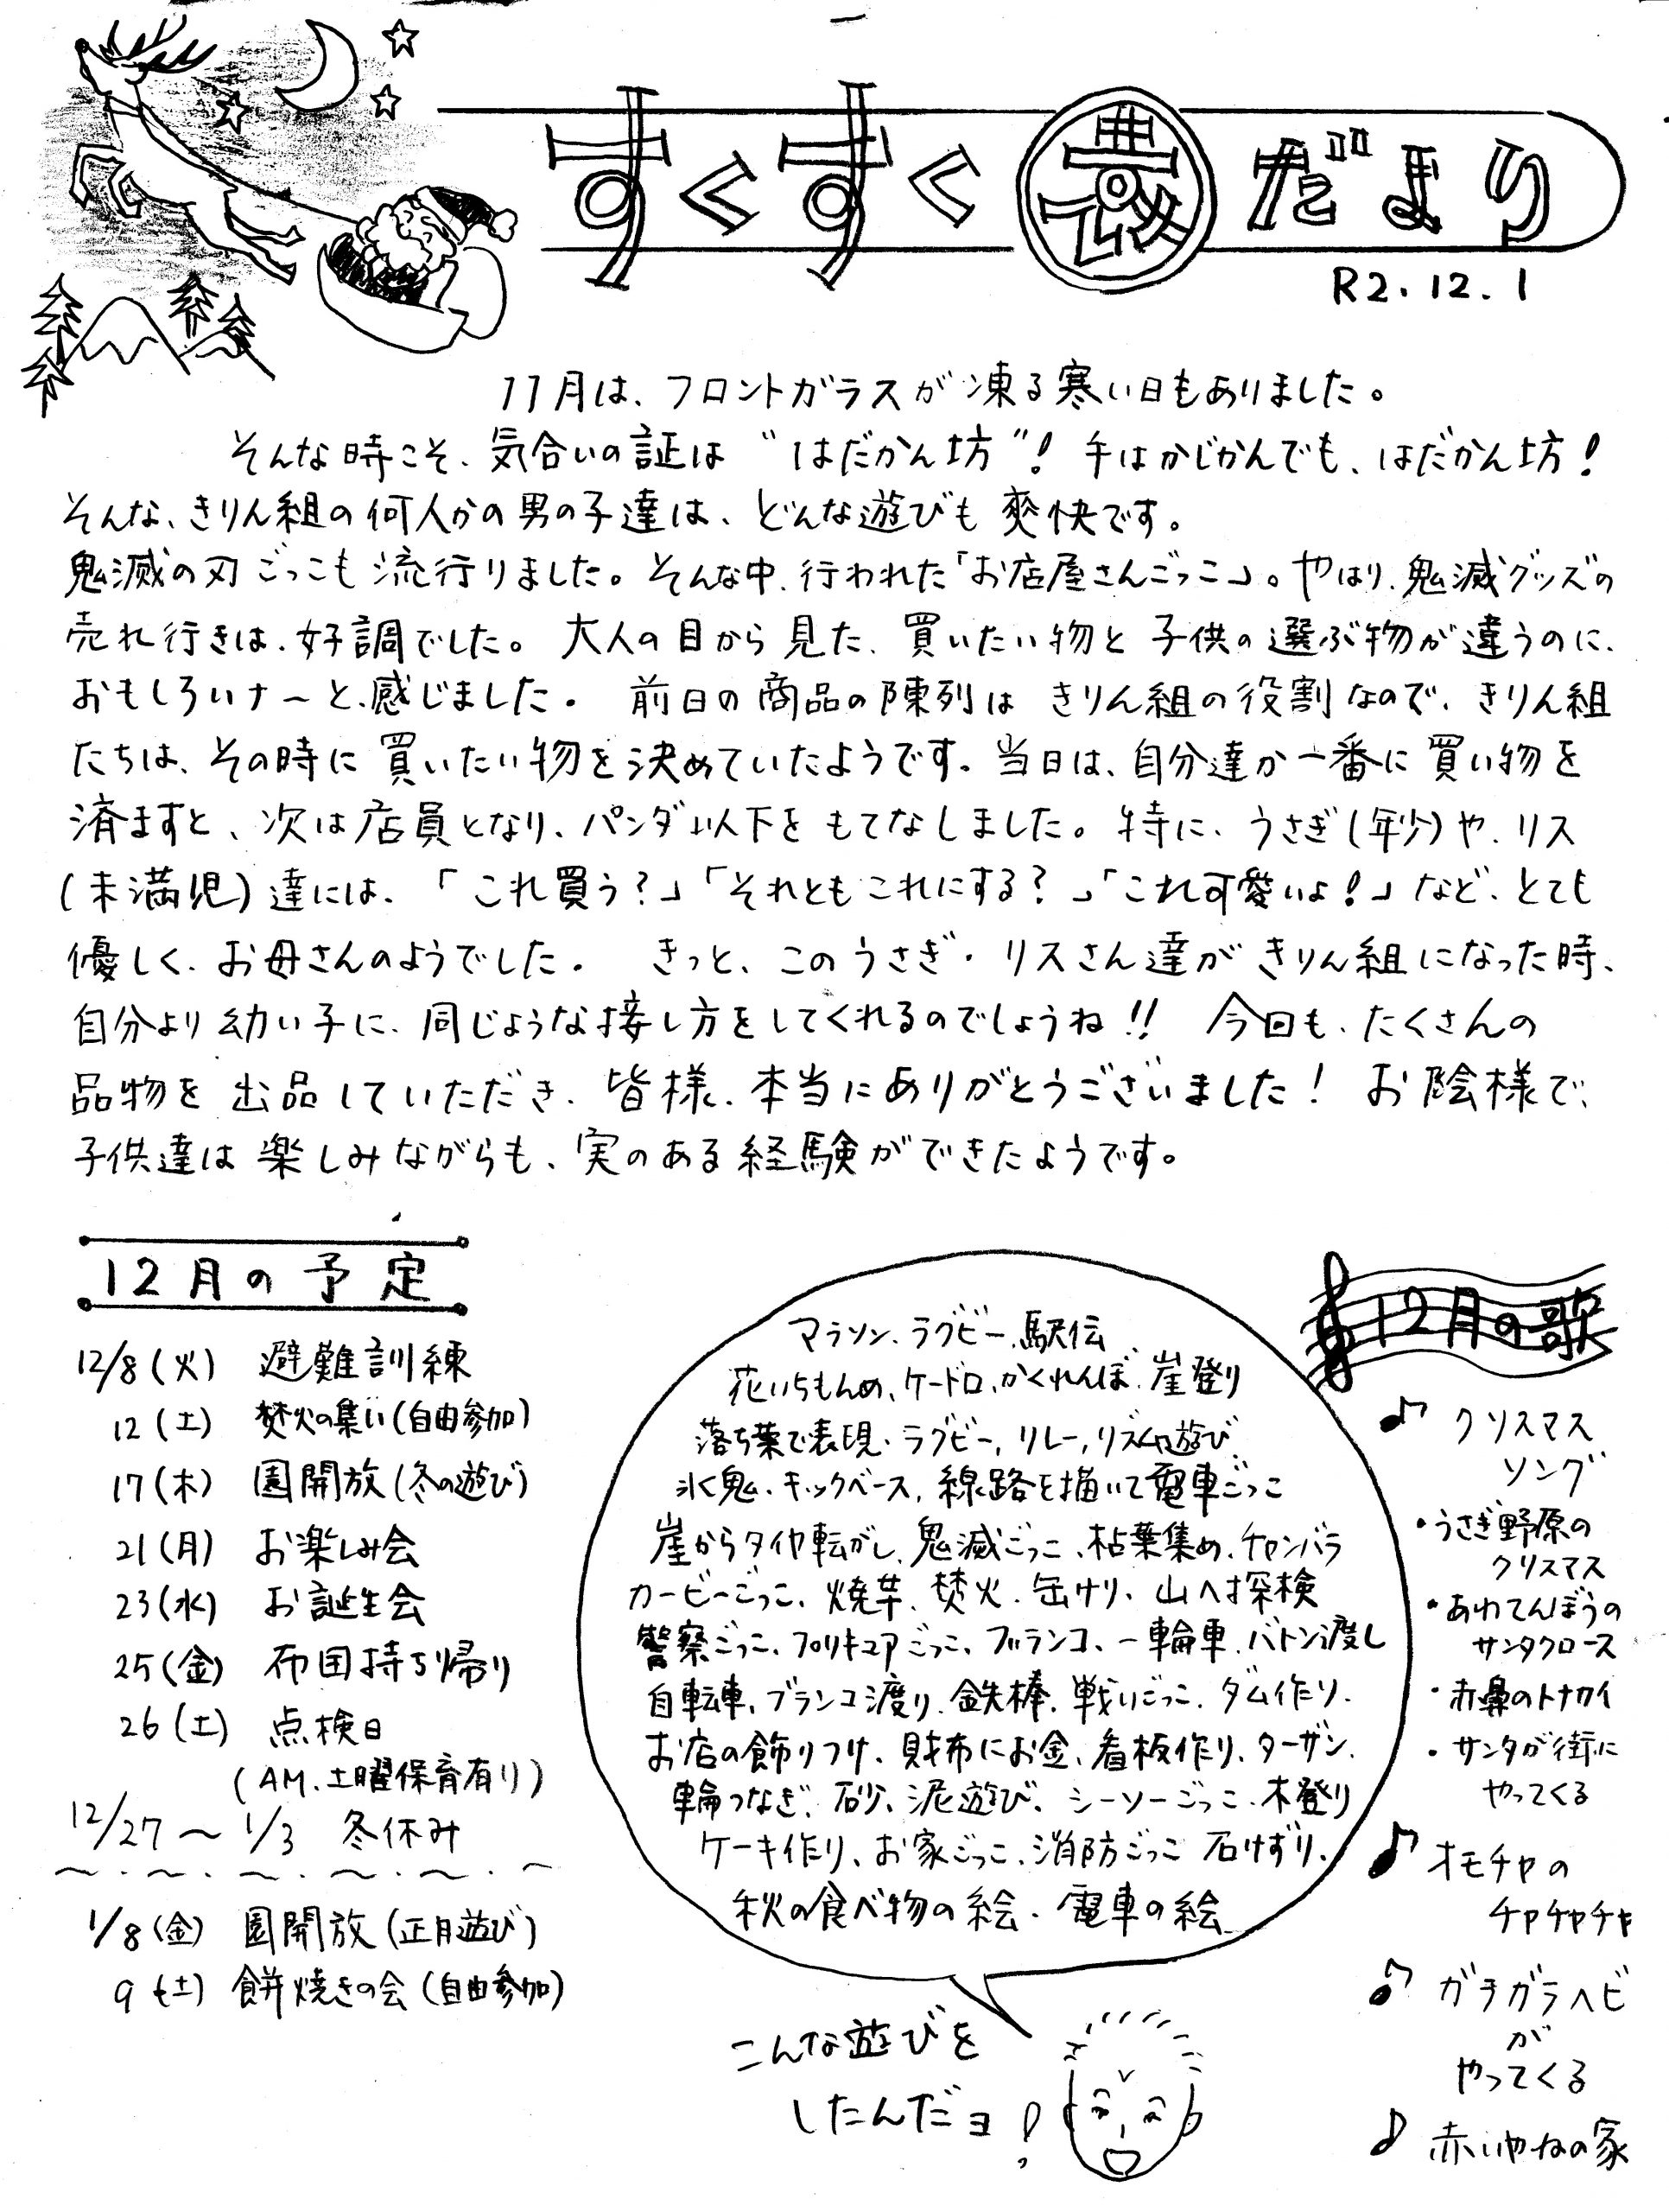 すくすく農だより
R2.12.1
11月は、フロントガラスが凍る寒い日もありました。
そんな時こそ、気合いの証は〝はだかん坊〟! 手はかじかんでも、はだかん坊!
そんな、きりん組の何人かの男の子達は、どんな遊びも爽快です。
鬼滅の刃ごっこも流行りました。そんな中、行われた「お店屋さんごっこ」。やはり、鬼滅グッズの
売れ行きは、好調でした。大人の目から見た、買いたい物と子供の選ぶ物が違うのに、
おもしろいナ〜と、感じました。 前日の商品の陳列は きりん組の役割なので、きりん組
たちは、その時に買いたい物を決めていたようです。当日は、自分達が一番に買い物を
済ますと、次は店員となり、パンダ以下をもてなしました。特に、うさぎ(年少)や、リス
(未満児)達には、「これ買う?」「それともこれにする?」「これ可愛いよ!」など、とても
優しく、お母さんのようでした。 きっと、このうさぎ・リスさん達がきりん組になった時、
自分より幼い子に、同じような接し方をしてくれるのでしょうね!! 今回も、たくさんの
品物を出品していただき、皆様、本当にありがとうございました! お陰様で、
子供達は楽しみながらも、実のある経験ができたようです。
12月の予定
12/8(火) 避難訓練
12(土) 焚火の集い(自由参加)
17(木) 園開放(冬の遊び)
21(月) お楽しみ会
23(水) お誕生会
25(金) 布団持ち帰り
26(土) 点検日
(AM、土曜保育有り)
12/27〜1/3 冬休み
1/8(金) 園開放(正月遊び)
9(土) 餅焼きの会(自由参加)
マラソン、ラグビー、駅伝
花いちもんめ、ケードロ、かくれんぼ、崖登り
落ち葉で表現、ラグビー、リレー、リズム遊び、
氷鬼、キックベース、線路を描いて電車ごっこ
崖からタイヤ転がし、鬼滅ごっこ、枯葉集め、チャンバラ
カービーごっこ、焼芋、焚火、缶けり、山へ探検
警察ごっこ、プリキュアごっこ、ブランコ、一輪車、バトン渡し
自転車、ブランコ渡り、鉄棒、戦いごっこ、ダム作り、
お店の飾りつけ、財布にお金、看板作り、ターザン、
輪つなぎ、砂、泥遊び、シーソーごっこ、木登り
ケーキ作り、お家ごっこ、消防ごっこ 石けずり、
秋の食べ物の絵、電車の絵
こんな遊びを
したんだヨ!
12月の歌
♪ クリスマス
ソング
・うさぎ野原の
クリスマス
・あわてんぼうの
サンタクロース
・赤鼻のトナカイ
・サンタが街に
やってくる
♪ オモチャの
チャチャチャ
♪ ガラガラヘビ
が
やってくる
♪ 赤いやねの家